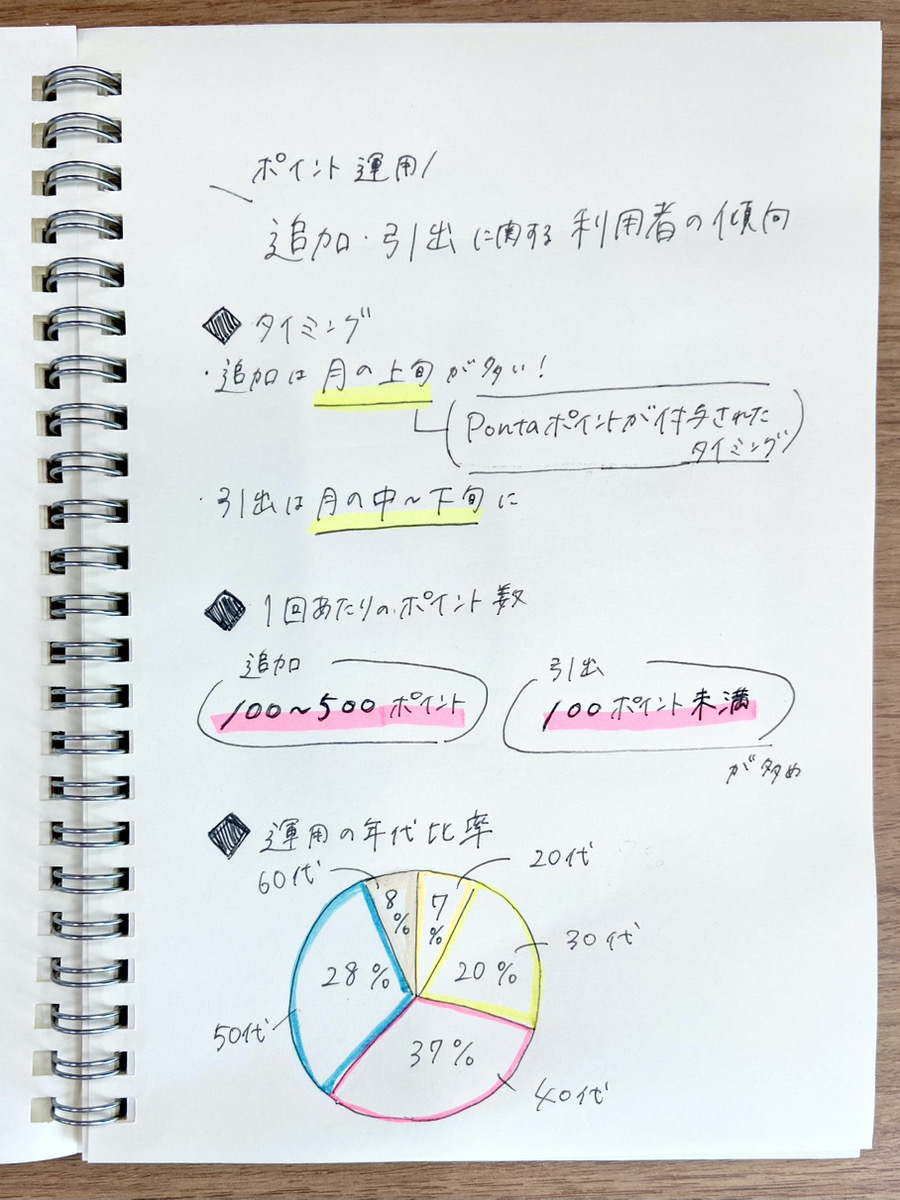 ポイント運用
追加・引出に関する利用者の傾向
◆タイミング
・追加は月の上旬が多い！
Pontaポイントが付与された
タイミング
・引出は月の中～下旬に
◆1回あたりのポイント数
追加
100～500ポイント
引出
100ポイント未満
が多め
◆運用の年代比率
60代
20代
8%
7%
30代
28%
20%
50代
37%
40代